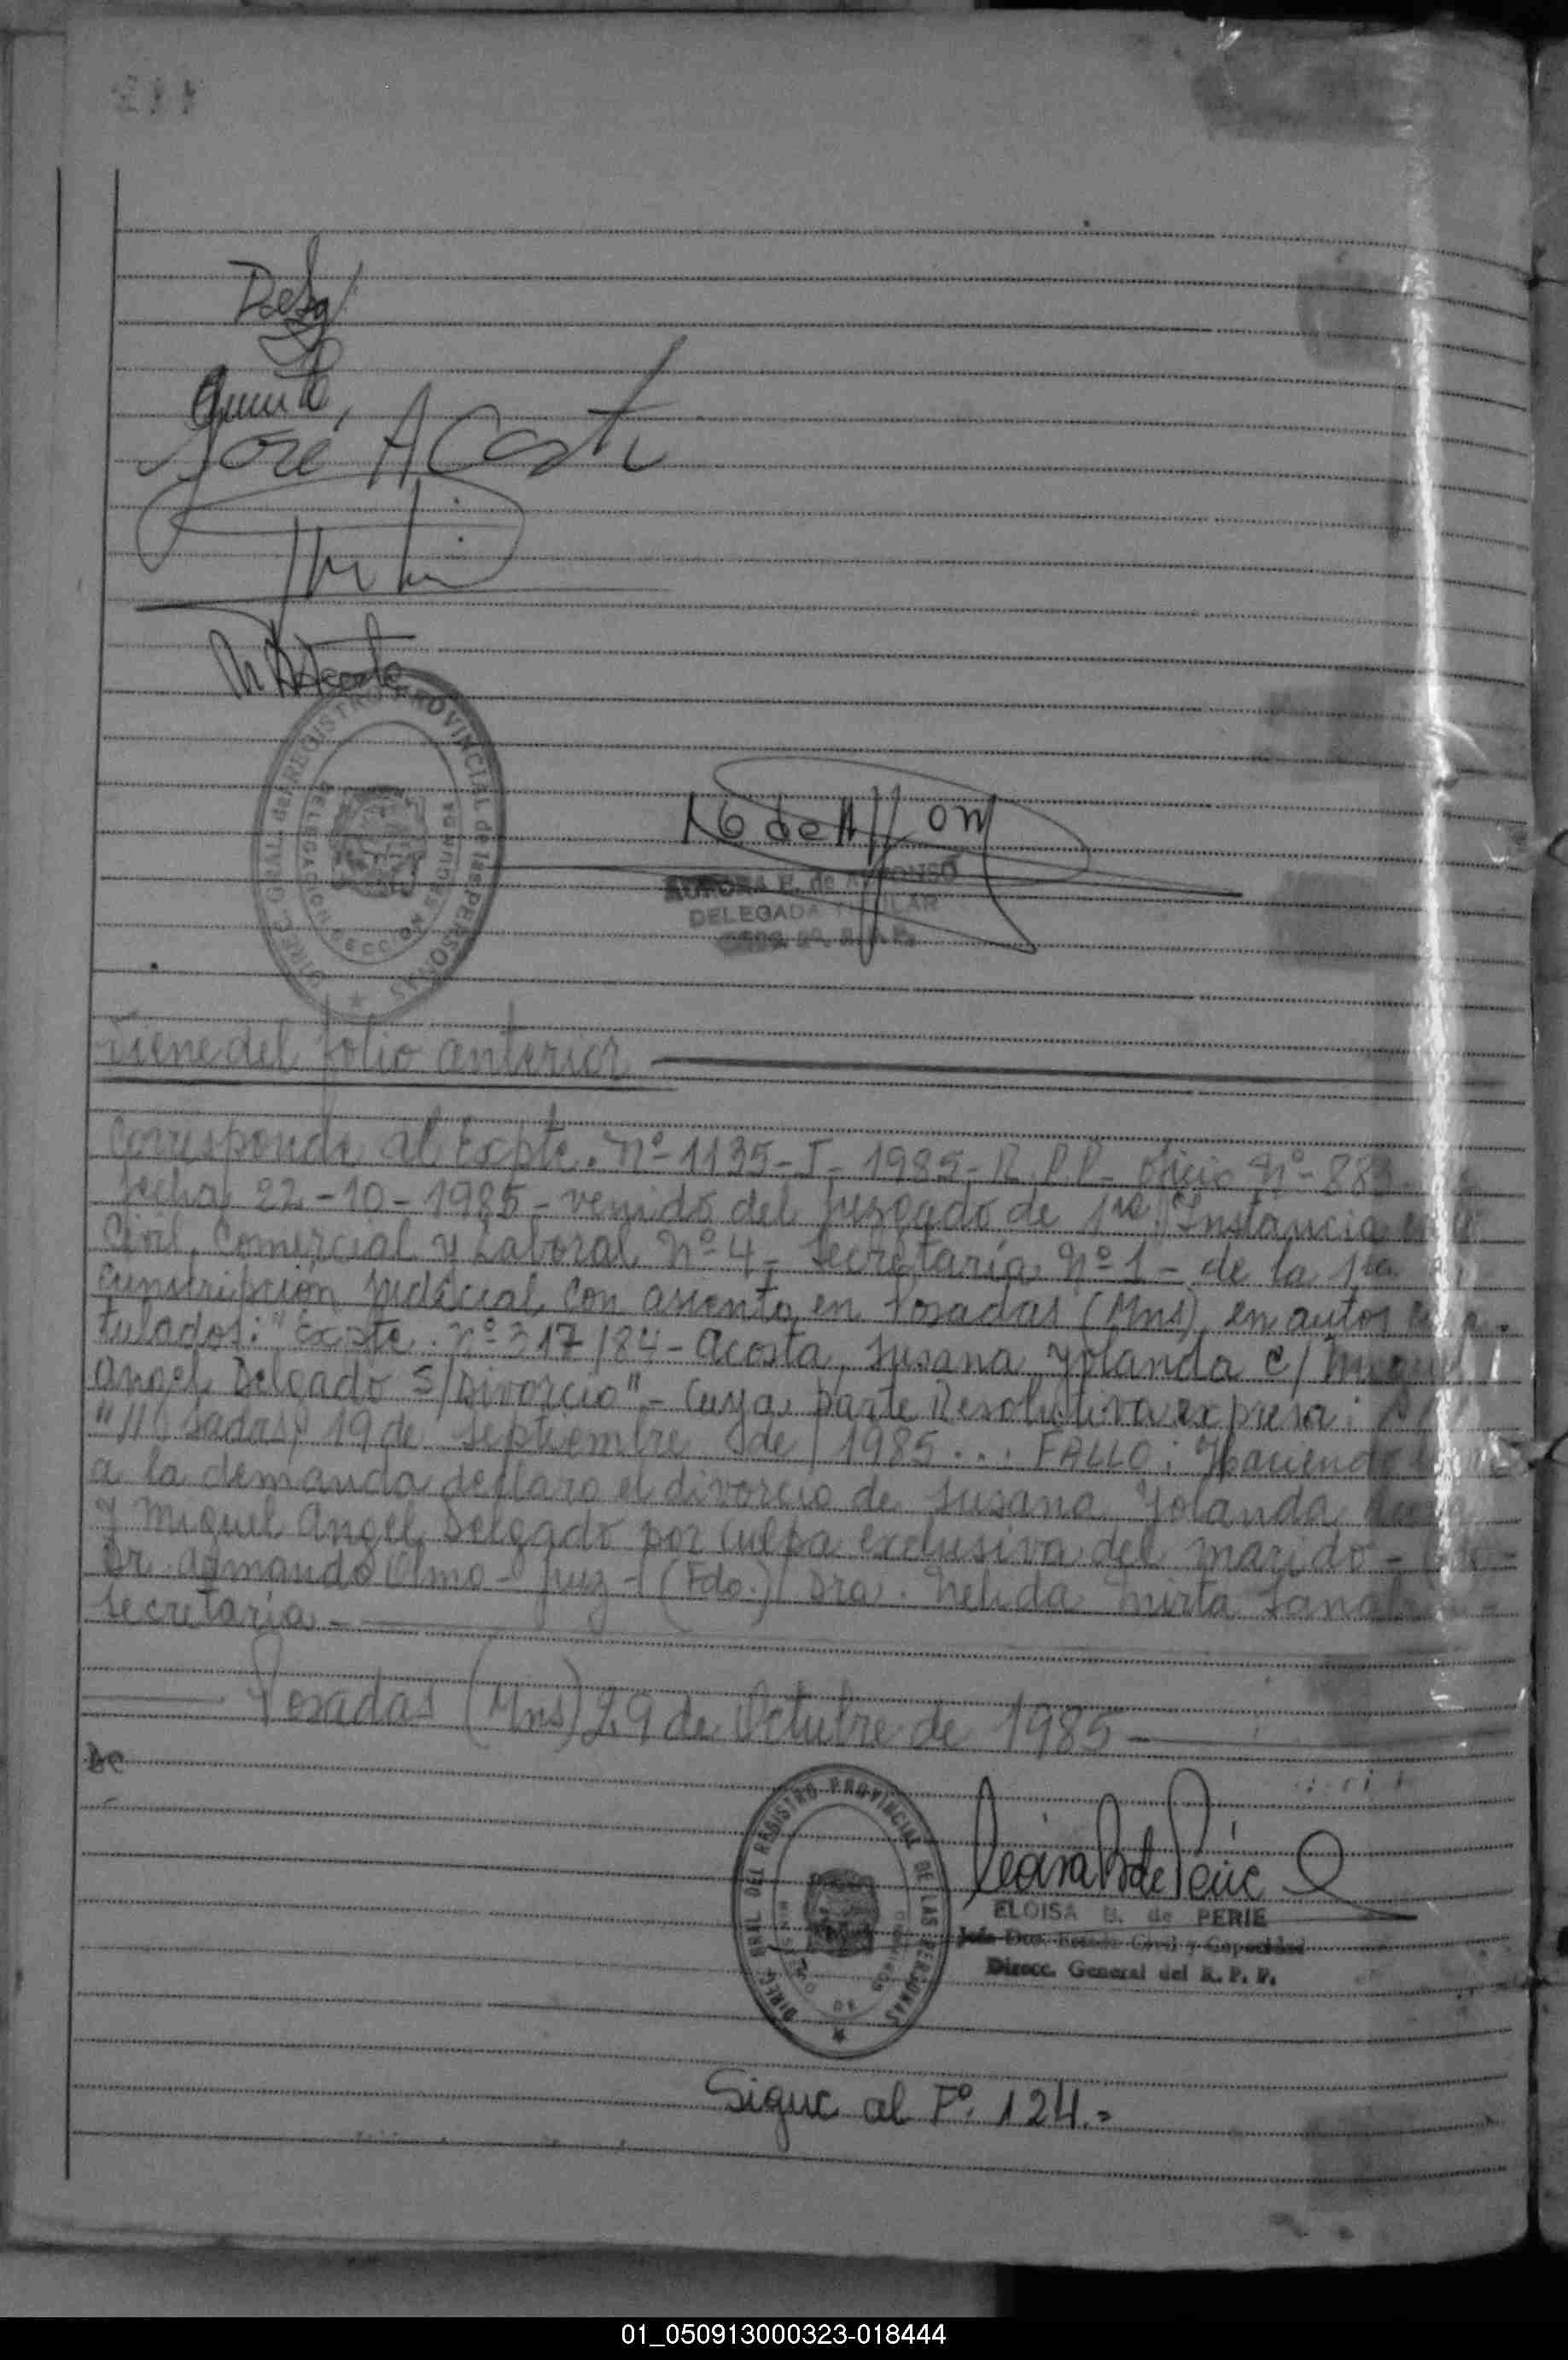 José Acosta
DIREC. GRAL. del REGISTRO PROVINCIAL de las PERSONAS
DELEGACION SECCION
AURORA E. de ALFONSO
DELEGADA TITULAR
Viene del folio anterior
Corresponde al Expte. Nº 1135-I-1985-R.P.P- Oficio Nº 883-
fecha 22-10-1985- venido del Juzgado de 1ra Instancia en lo
Civil, Comercial y Laboral Nº 4- Secretaría Nº 1- de la 1ra
cunscripción Judicial con asiento en Posadas (Mns) en autos
tulados: "Expte. Nº 317/84- Acosta, Susana Yolanda c/ Miguel
Angel Delgado s/Divorcio"- Cuya parte Resolutiva expresa:
"//sadas, 19 de Septiembre de 1985... FALLO: Haciendo lugar
a la demanda declaro el divorcio de Susana Yolanda Acosta
y Miguel Angel Delgado por culpa exclusiva del marido-
Dr. Armando Olmo- Juez- (Fdo.) Dra. Nelida Mirta
Secretaria-
Posadas (Mns) 29 de Octubre de 1985-
DIREC. GRAL. DEL REGISTRO PROVINCIAL DE LAS PERSONAS
ELOISA B. de PERIE
Jefe Dto. Estado Civil y Capacidad
Direcc. General del R. P. P.
Sigue al Fº. 124.=
01_050913000323-018444